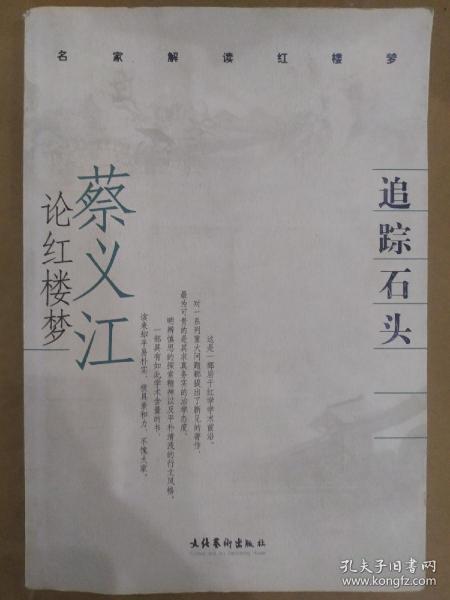 名家解读红楼梦
追踪石头
蔡义江
论红楼梦
这是一部居于红学学术前沿、
对一系列重大问题都提出了新见的著作,
最为可贵的是其求真务实的治学态度、
明辨慎思的探索精神以及平朴清浅的行文风格,
一部具有如此学术含量的书,
读来却平易朴实、极具亲和力,不愧大家。
文化艺术出版社
孔夫子旧书网
www.kongfz.com